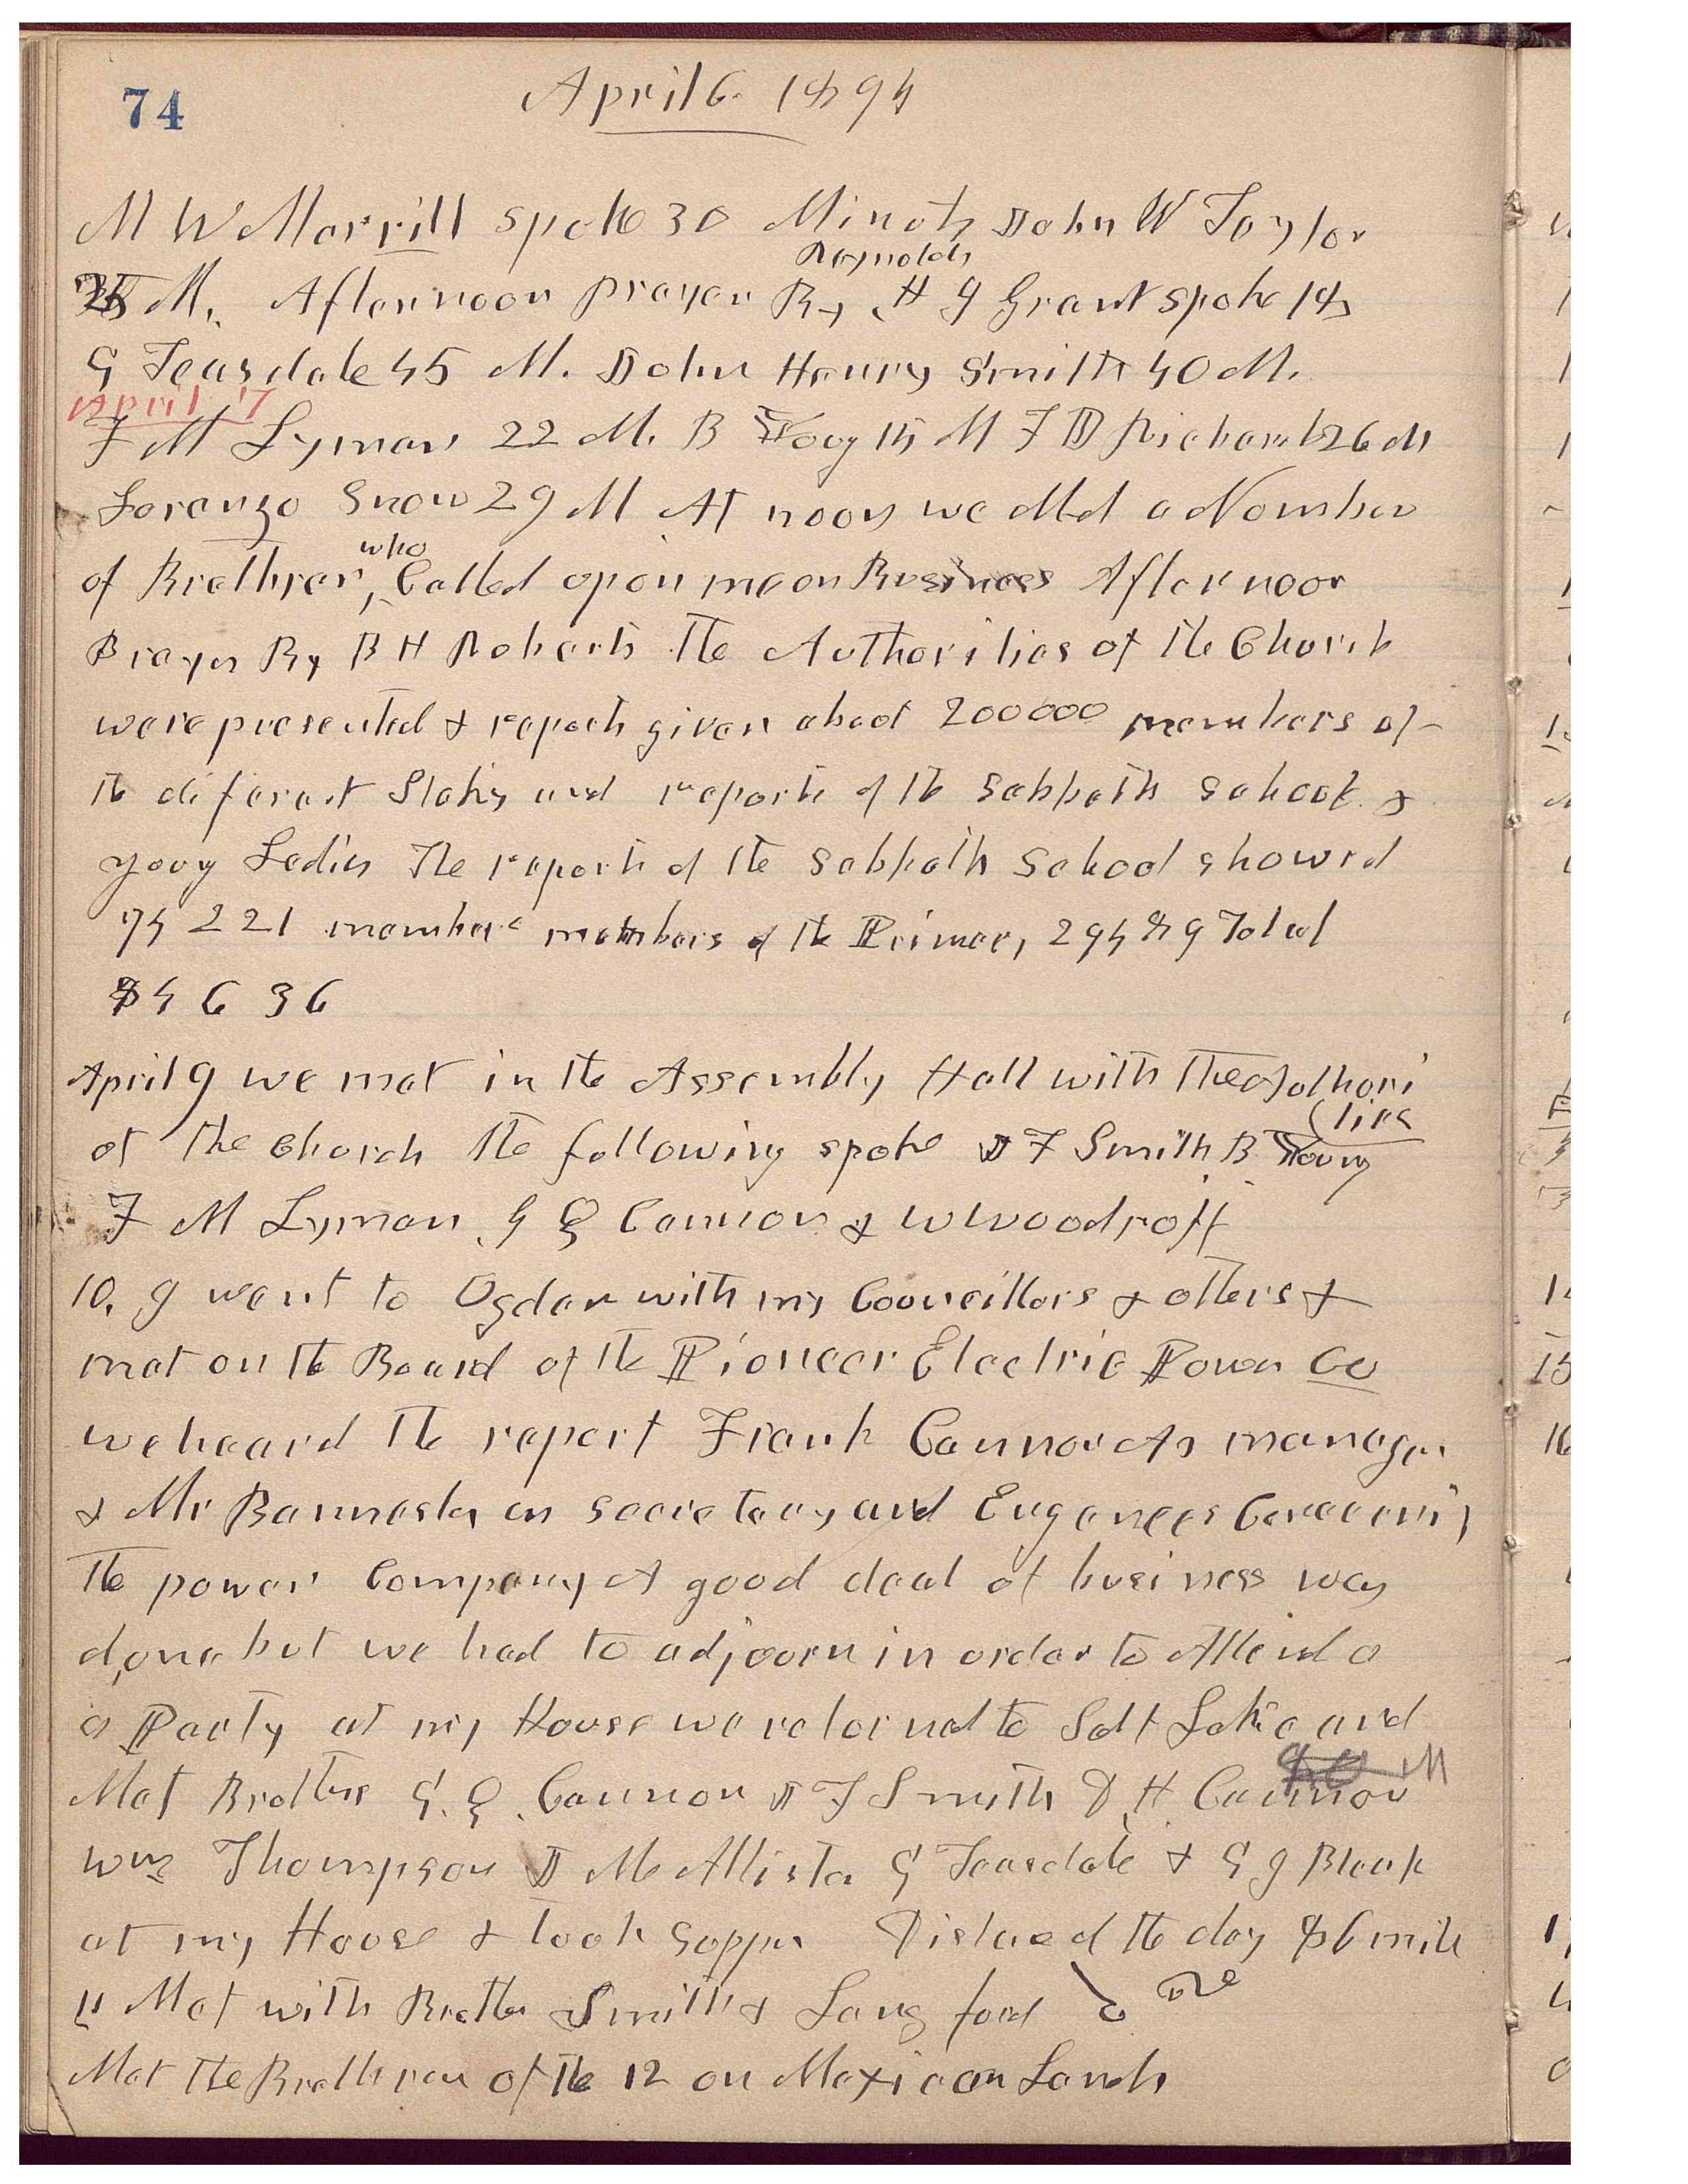 74
April 6. 1894
M W Merrill spoke 30 Minuts John W Taylor
Reynolds
25 M. Afternoon Prayer By H J Grant spoke 18
G Teasdale 45 M. John Henry Smith 40 M.
April 7
F M Lyman 22 M. B Young 15 M F D Richards 26 M
Lorenzo Snow 29 M At noon we Met a Number
who
of Brethren, Called upon me on Business Afternoon
Prayer By B H Roberts The Authorities of the Church
were presented & reports given about 200000 members of
the diferent Stakes and reports of the Sabbath School &
Young Ladies The reports of the Sabbath School showed
members members of the Primary Total
84636
April 9 we met in the Assembly Hall with the Authori
ties
of the Church the following spoke J F Smith B Young
F M Lyman G Q Cannon & W Woodruff
10. I went to Ogden with my Councillors & others &
met on the Board of the Pioneer Electric Power Co
we heard the report Frank Cannon As manager
& Mr Bannester as Secretary and Engeneer
the power Company A good deal of business was
done but we had to adjourn in order to Attend a
a Party at my House we returned to Salt Lake and
M
Met Brothers G. Q. Cannon J F Smith D H Cannon
Wm Thompson J McAllister G Teasdale & Bleak
at my House & took Supper Distance of the day 86 mile
11 Met with Brother Smith & Langford
Met the Brethren of the 12 on Mexican Lands